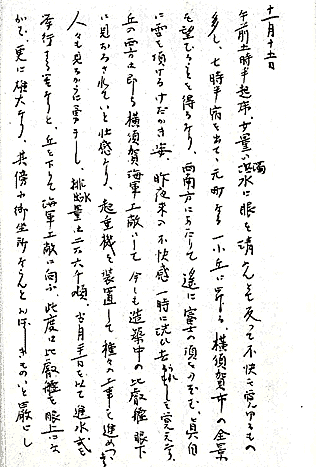 十一月十五日
午前六時半起床、少量の濁水に眼を清めんも反って不快を覚ゆるもの
多し、七時半宿を出で、元町なる一小丘に昇る、横須賀市の全景
を望むことを得るなり、西南方にあたりて遙に富士の頂をのぞむ、真白
に雪を頂けるけだかき姿、昨夜来の不快感一時に洗ひ去られしを覚えき、
丘の東方は即ち横須賀海軍工廠にして今しも造築中の比叡艦眼下
に見おろされていと壮感なり、起重機を装置して種々の工事を進めつつある
人々も見るからに勇まし、排水量は二六〇〇〇噸、当月半日を以て進水式を
挙行するなりと、丘を下りて海軍工廠に向ふ、此度は比叡艦を眼上に
かて、更に雄大なり、其傍に御坐所ならんとおぼしきものいと厳し